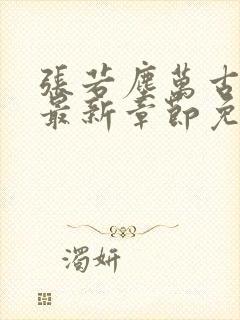 張若塵萬古
最新章節免
濁妍